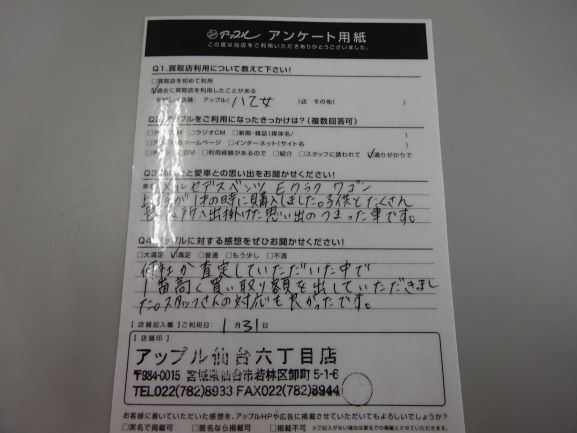 アップル アンケート用紙
この度は当店をご利用いただきありがとうございました。
Q1.買取店利用について教えて下さい!
□買取店を初めて利用
過去に買取店を利用したことがある
アップル(八乙女)店 その他( )
アップルをご利用になったきっかけは?(複数回答可)
CM □ラジオCM □新聞・雑誌(媒体名/ )
ホームページ □インターネット(サイト名 )
CM □利用経験があるので □紹介 □スタッフに誘われて ☑通りがかりで
と愛車との思い出をお聞かせください!
メルセデスベンツ Eクラス ワゴン
が1才の時に購入しました。子供とたくさん
出掛けた思い出のつまった車です。
アップルに対する感想をぜひお聞かせください!
□大満足 ☑満足 □普通 □もう少し □不満
何社か査定していただいた中で
1番高く買い取り額を出していただきまし
た。スタッフさんの対応も良かったです。
【店舗記入欄】ご利用日: 1月31日
【店舗印】
アップル仙台六丁目店
〒984-0015 宮城県仙台市若林区卸町5-1-6
TEL022(782)8933 FAX022(782)8944
お客様に書いていただいた感想を、アップルHPや広告に掲載させていただいてもよろしいでしょうか?
□実名で掲載可 □匿名なら掲載可 □掲載不可 ※ご記入がない場合は匿名での掲載とさせていただきます。